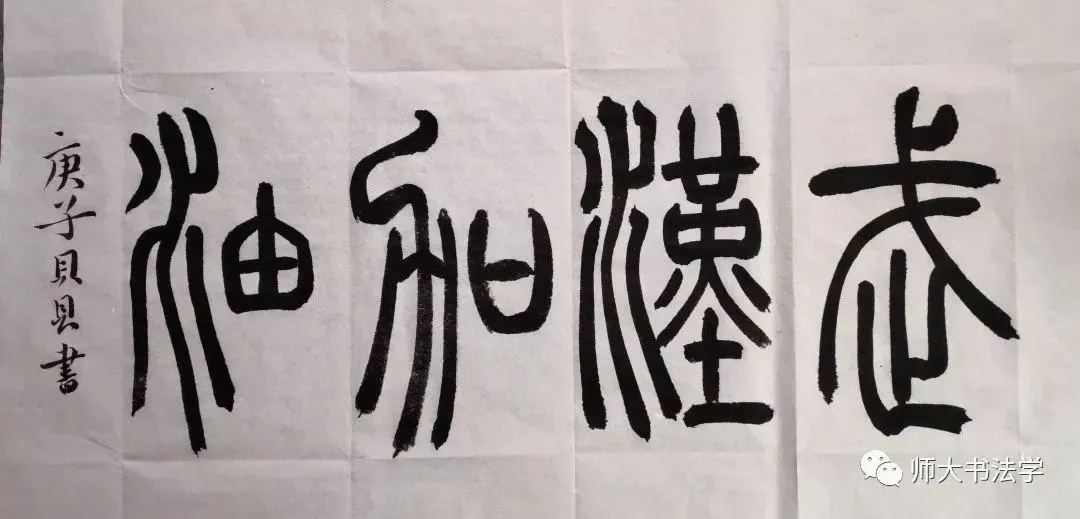 武漢加油
庚子貝貝書
师大书法学